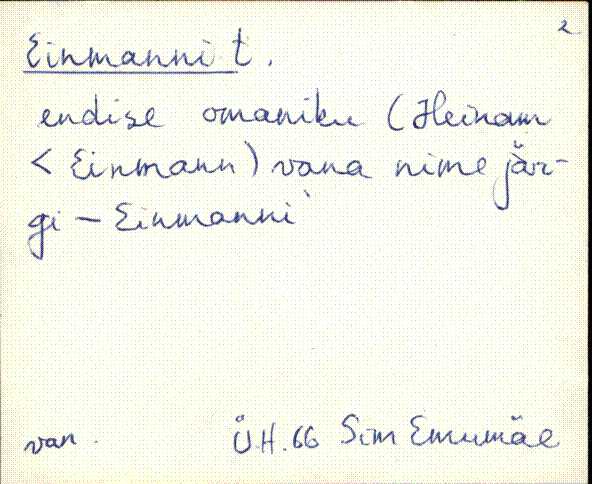 2
Einmanni t.
endise omaniku (Heinam
< Einmann) vana nime jär-
gi - Einmanni
van. Ü.H. 66 Sim Emumäe